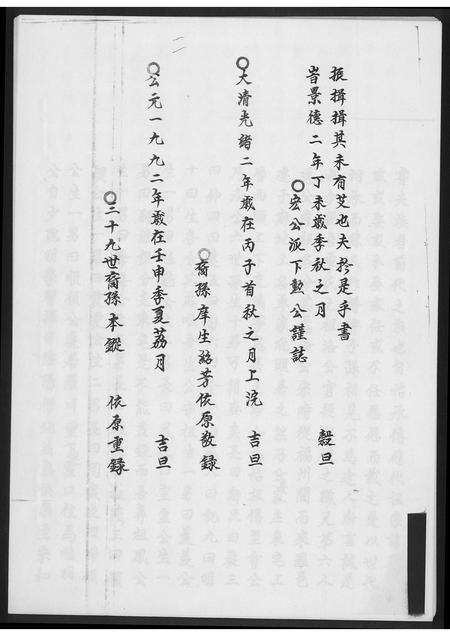 振揖揖其未有艾也夫於是手書
峕景德二年丁未歲季秋之月 穀旦
○宏公派下勲公謹誌
○大清光緒二年歲在丙子首秋之月上浣 吉旦
○裔孫庠生 芳依原敬録
○公元一九九二年歲在壬申季夏荔月 吉旦
○三十九世裔孫本鑑 依原重録